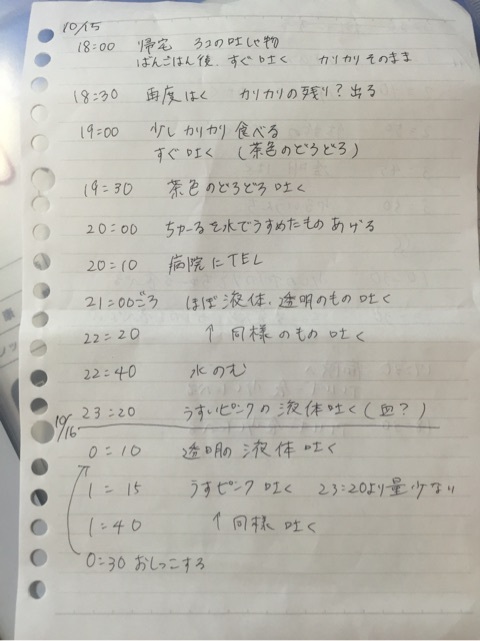 10/15
18:00 帰宅 3コの吐しゃ物
ばんごはん後、すぐ吐く カリカリそのまま
18:30 再度はく カリカリの残り？出る
19:00 少しカリカリ食べる
すぐ吐く（茶色のどろどろ）
19:30 茶色のどろどろ吐く
20:00 ちゅーるを水でうすめたものあげる
20:10 病院にTEL
21:00ごろ ほぼ液体、透明のもの吐く
22:20 ↑同様のもの吐く
22:40 水のむ
23:20 うすいピンクの液体吐く（血？）
10/16
0:10 透明の液体吐く
1:15 うすピンク吐く 23:20より量少ない
1:40 ↑同様吐く
0:30 おしっこする